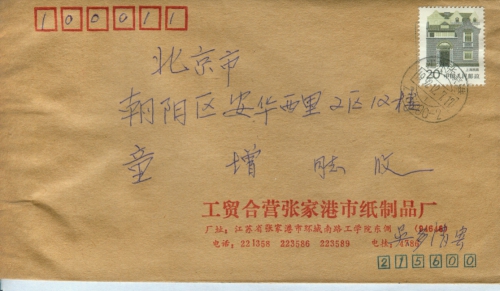 100011
20分 中国人民邮政
北京市
朝阳区安华西里2区12楼
童增 同志 收
工贸合营张家港市纸制品厂
厂址：江苏省张家港市环城南路工学院东侧
电话：221356 223586 223589 电挂：
215600